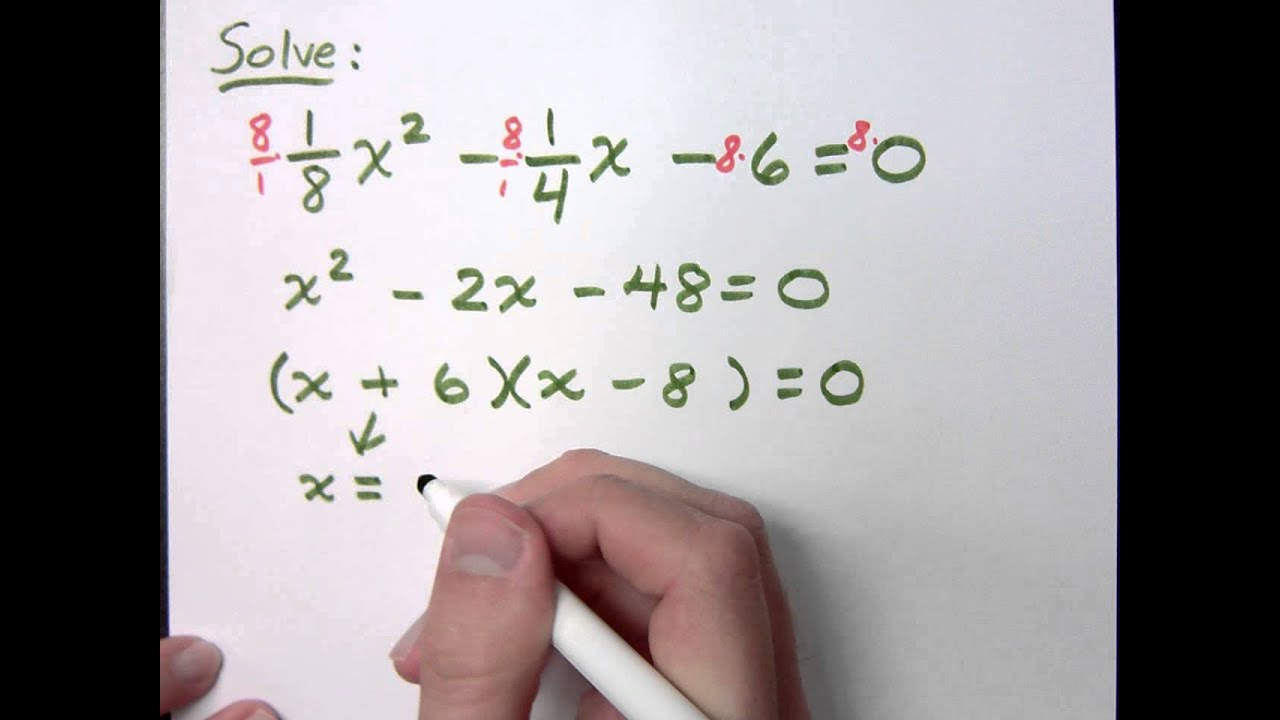 Solve:
8/1 · 1/8 x² - 8/1 · 1/4 x - 8·6 = 8·0
x² - 2x - 48 = 0
(x + 6)(x - 8) = 0
↙
x =